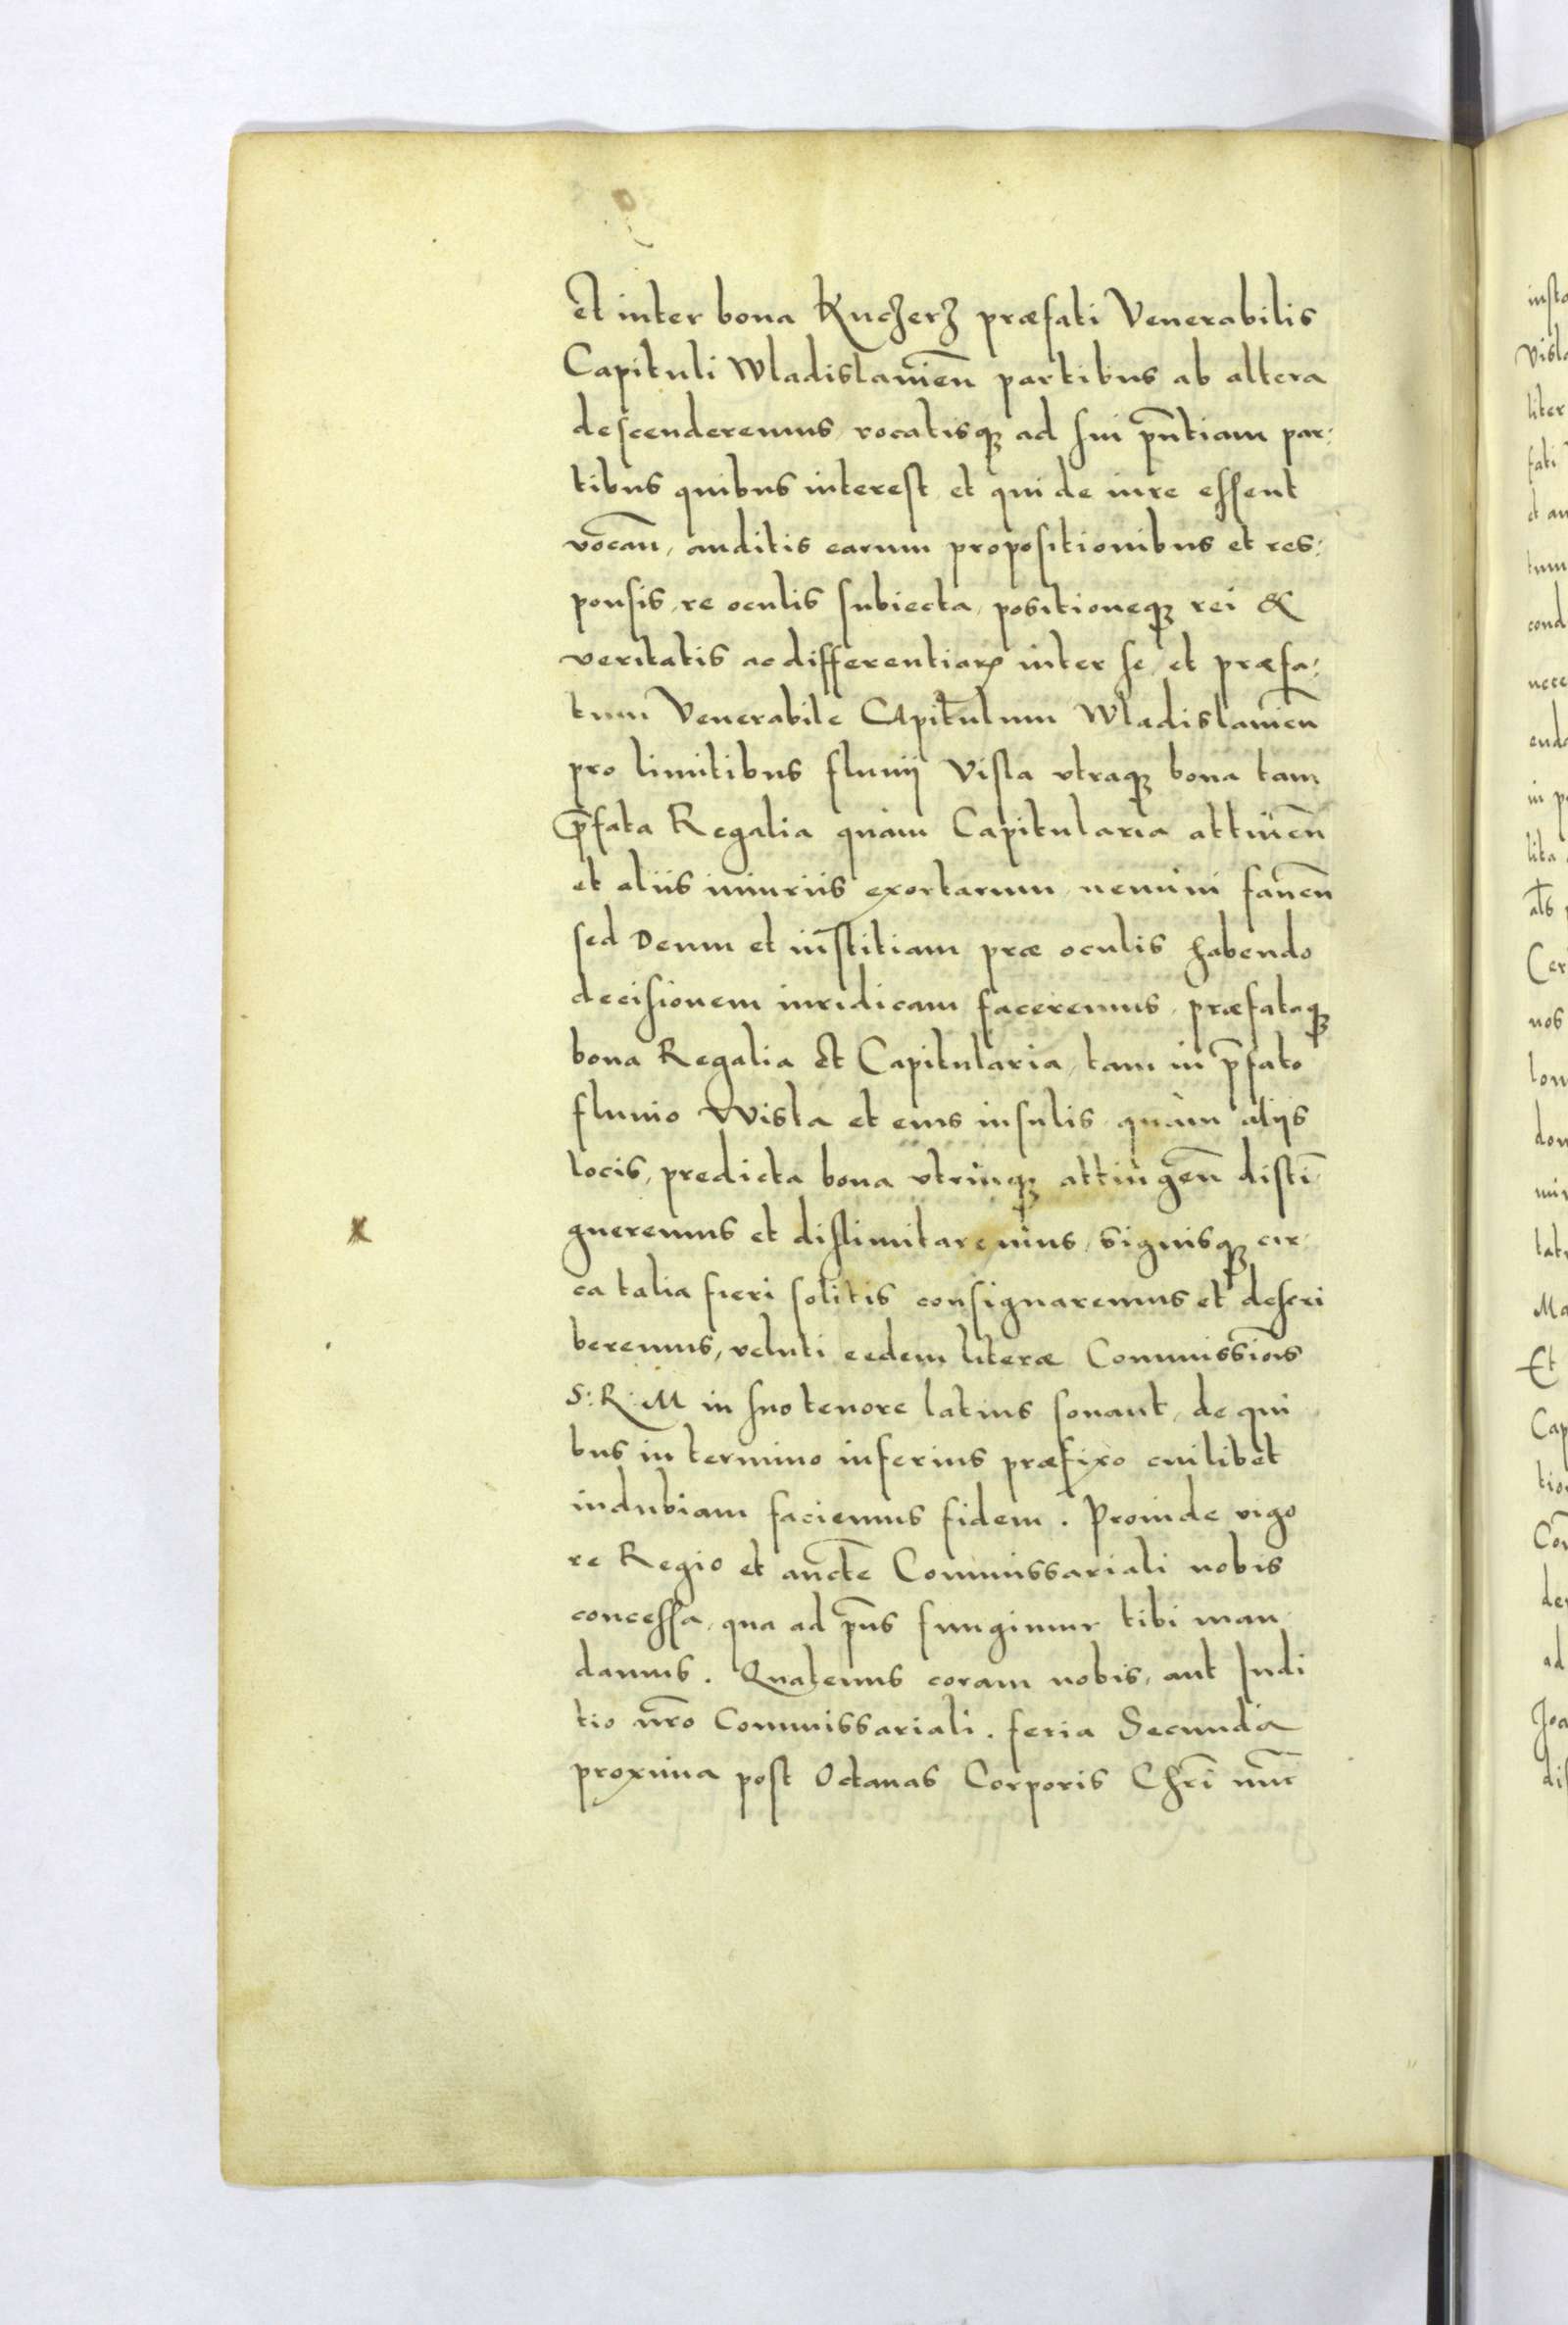 et inter bona Kuczerz præfati Venerabilis
Capituli Wladislauien̄ partibus ab altera
descenderemus, vocatisq́ꝫ ad sui p̄ntiam par:
tibus quibus interest, et qui de iure essent
vocan̄, auditis earum propositionibus et res:
ponsis, re oculis subiecta, positioneqꝫ rei &
veritatis ac differentiaꝝ inter se, et præfa:
tum Venerabile Capitulum Wladislauien̄
pro limitibus fluuij Visla vtraqꝫ bona tam
p̄fata Regalia quàm Capitularia attinen̄
et aliis iniuriis exortarum, nemini fauen̄
sed Deum et iustitiam præ oculis habendo
decisionem iuridicam faceremus, præfataqꝫ
bona Regalia et Capitularia, tam in p̄fato
fluuio Wisla et eius insulis quàm aliis
locis, predicta bona vtrinqꝫ attingen̄ disti̅
gueremus et dislimitaremus, signisqꝫ cir:
ca talia fieri solitis consignaremus et descri
beremus, veluti eedem literæ Commissiōis
S: R: M in suo tenore latius sonant, de qui
bus in termino inferius præfixo cuilibet
indubiam faciemus fidem. Proinde vigo
re Regio et aucte̅ Commissariali nobis
concessa, qua ad p̄ns fungimur tibi man
damus. Quatenus coram nobis, aut Iudi
tio nr̄o Commissariali. feria Secunda
proxima post Octauas Corporis Chr̄i nūc